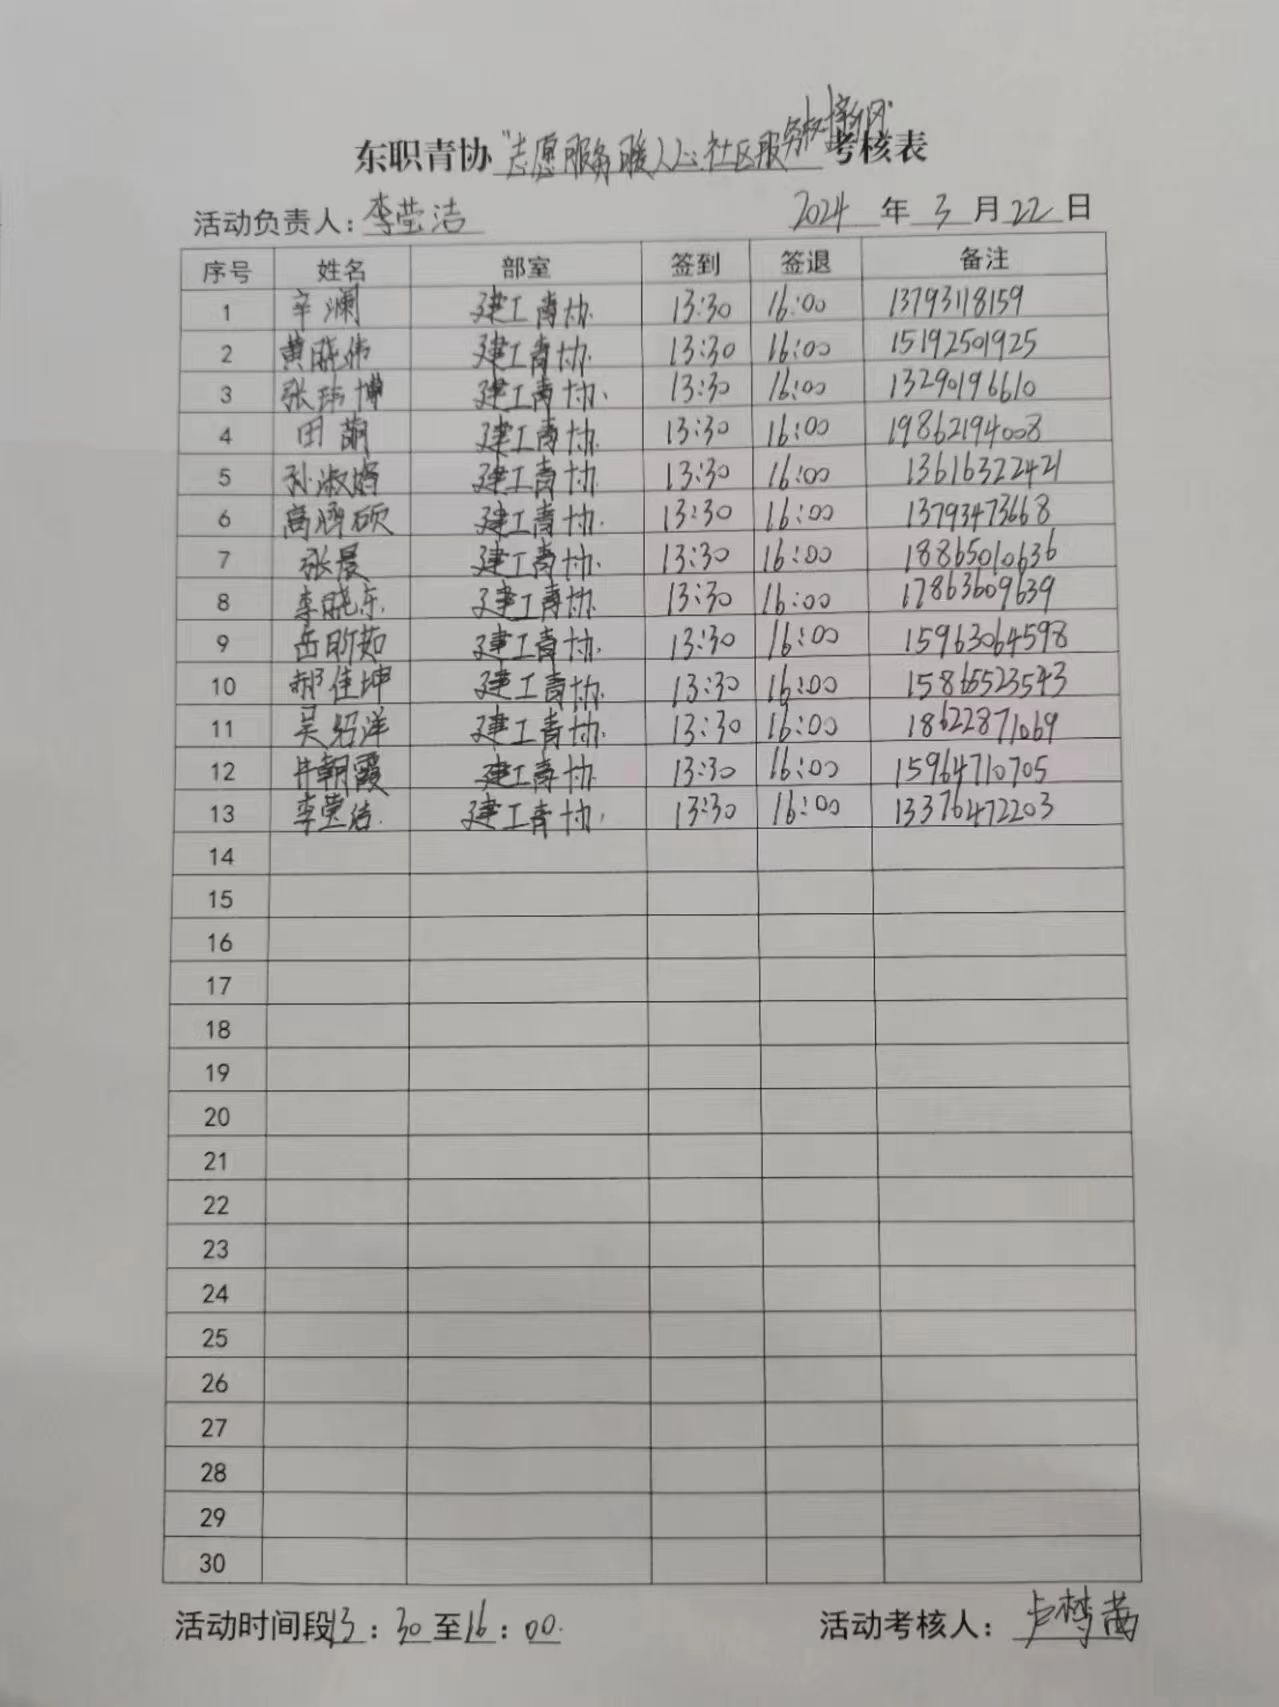 东职青协"志愿服务暖人心.社区服务树新风"考核表
活动负责人：李莹洁 2024年3月22日
序号 姓名 部室 签到 签退 备注
1 辛澜 建工青协 13:30 16:00 13793118159
2 黄晓伟 建工青协 13:30 16:00 15192501925
3 张玮博 建工青协 13:30 16:00 13290196610
4 田萌 建工青协 13:30 16:00 19862194008
5 孙淑 建工青协 13:30 16:00 13616322421
6 高 硕 建工青协 13:30 16:00 13793473668
7 张晨 建工青协 13:30 16:00 18865010636
8 李晓东 建工青协 13:30 16:00 17863609639
9 岳昕茹 建工青协 13:30 16:00 15963064598
10 郝佳坤 建工青协 13:30 16:00 15865523543
11 吴绍洋 建工青协 13:30 16:00 18622871069
12 牛朝霞 建工青协 13:30 16:00 15964710705
13 李莹洁 建工青协 13:30 16:00 13376472203
14
15
16
17
18
19
20
21
22
23
24
25
26
27
28
29
30
活动时间段13：30至16：00. 活动考核人：卢梦茜